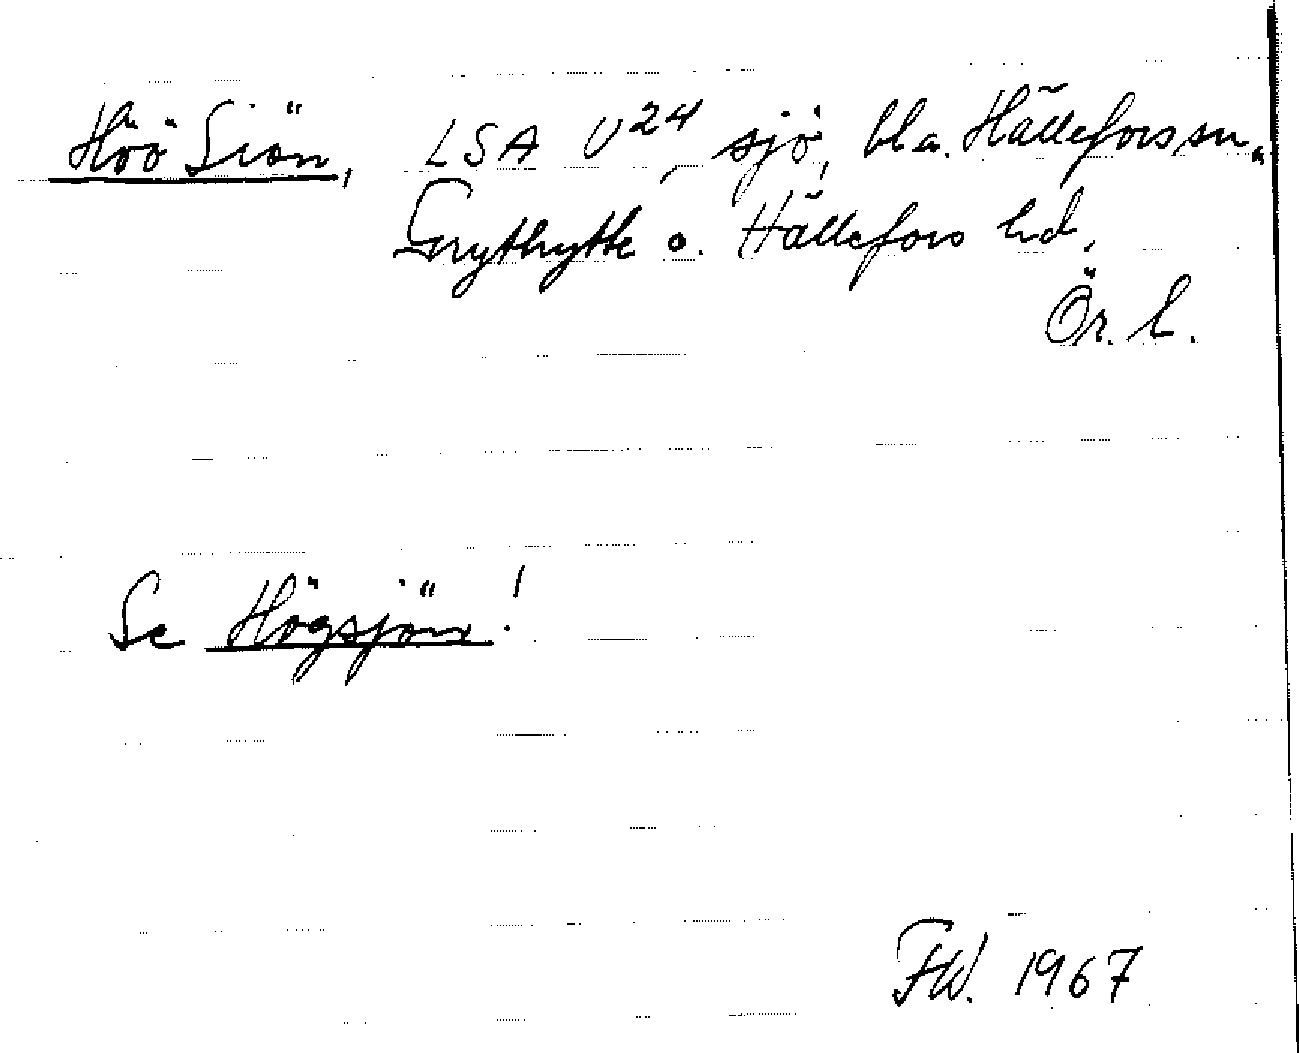 Höö Siön, LSA U24 sjö, bl.a. Hällefors sn,
Grythytte o. Hällefors hd,
Ör. l.
Se Högsjön!
FW. 1967